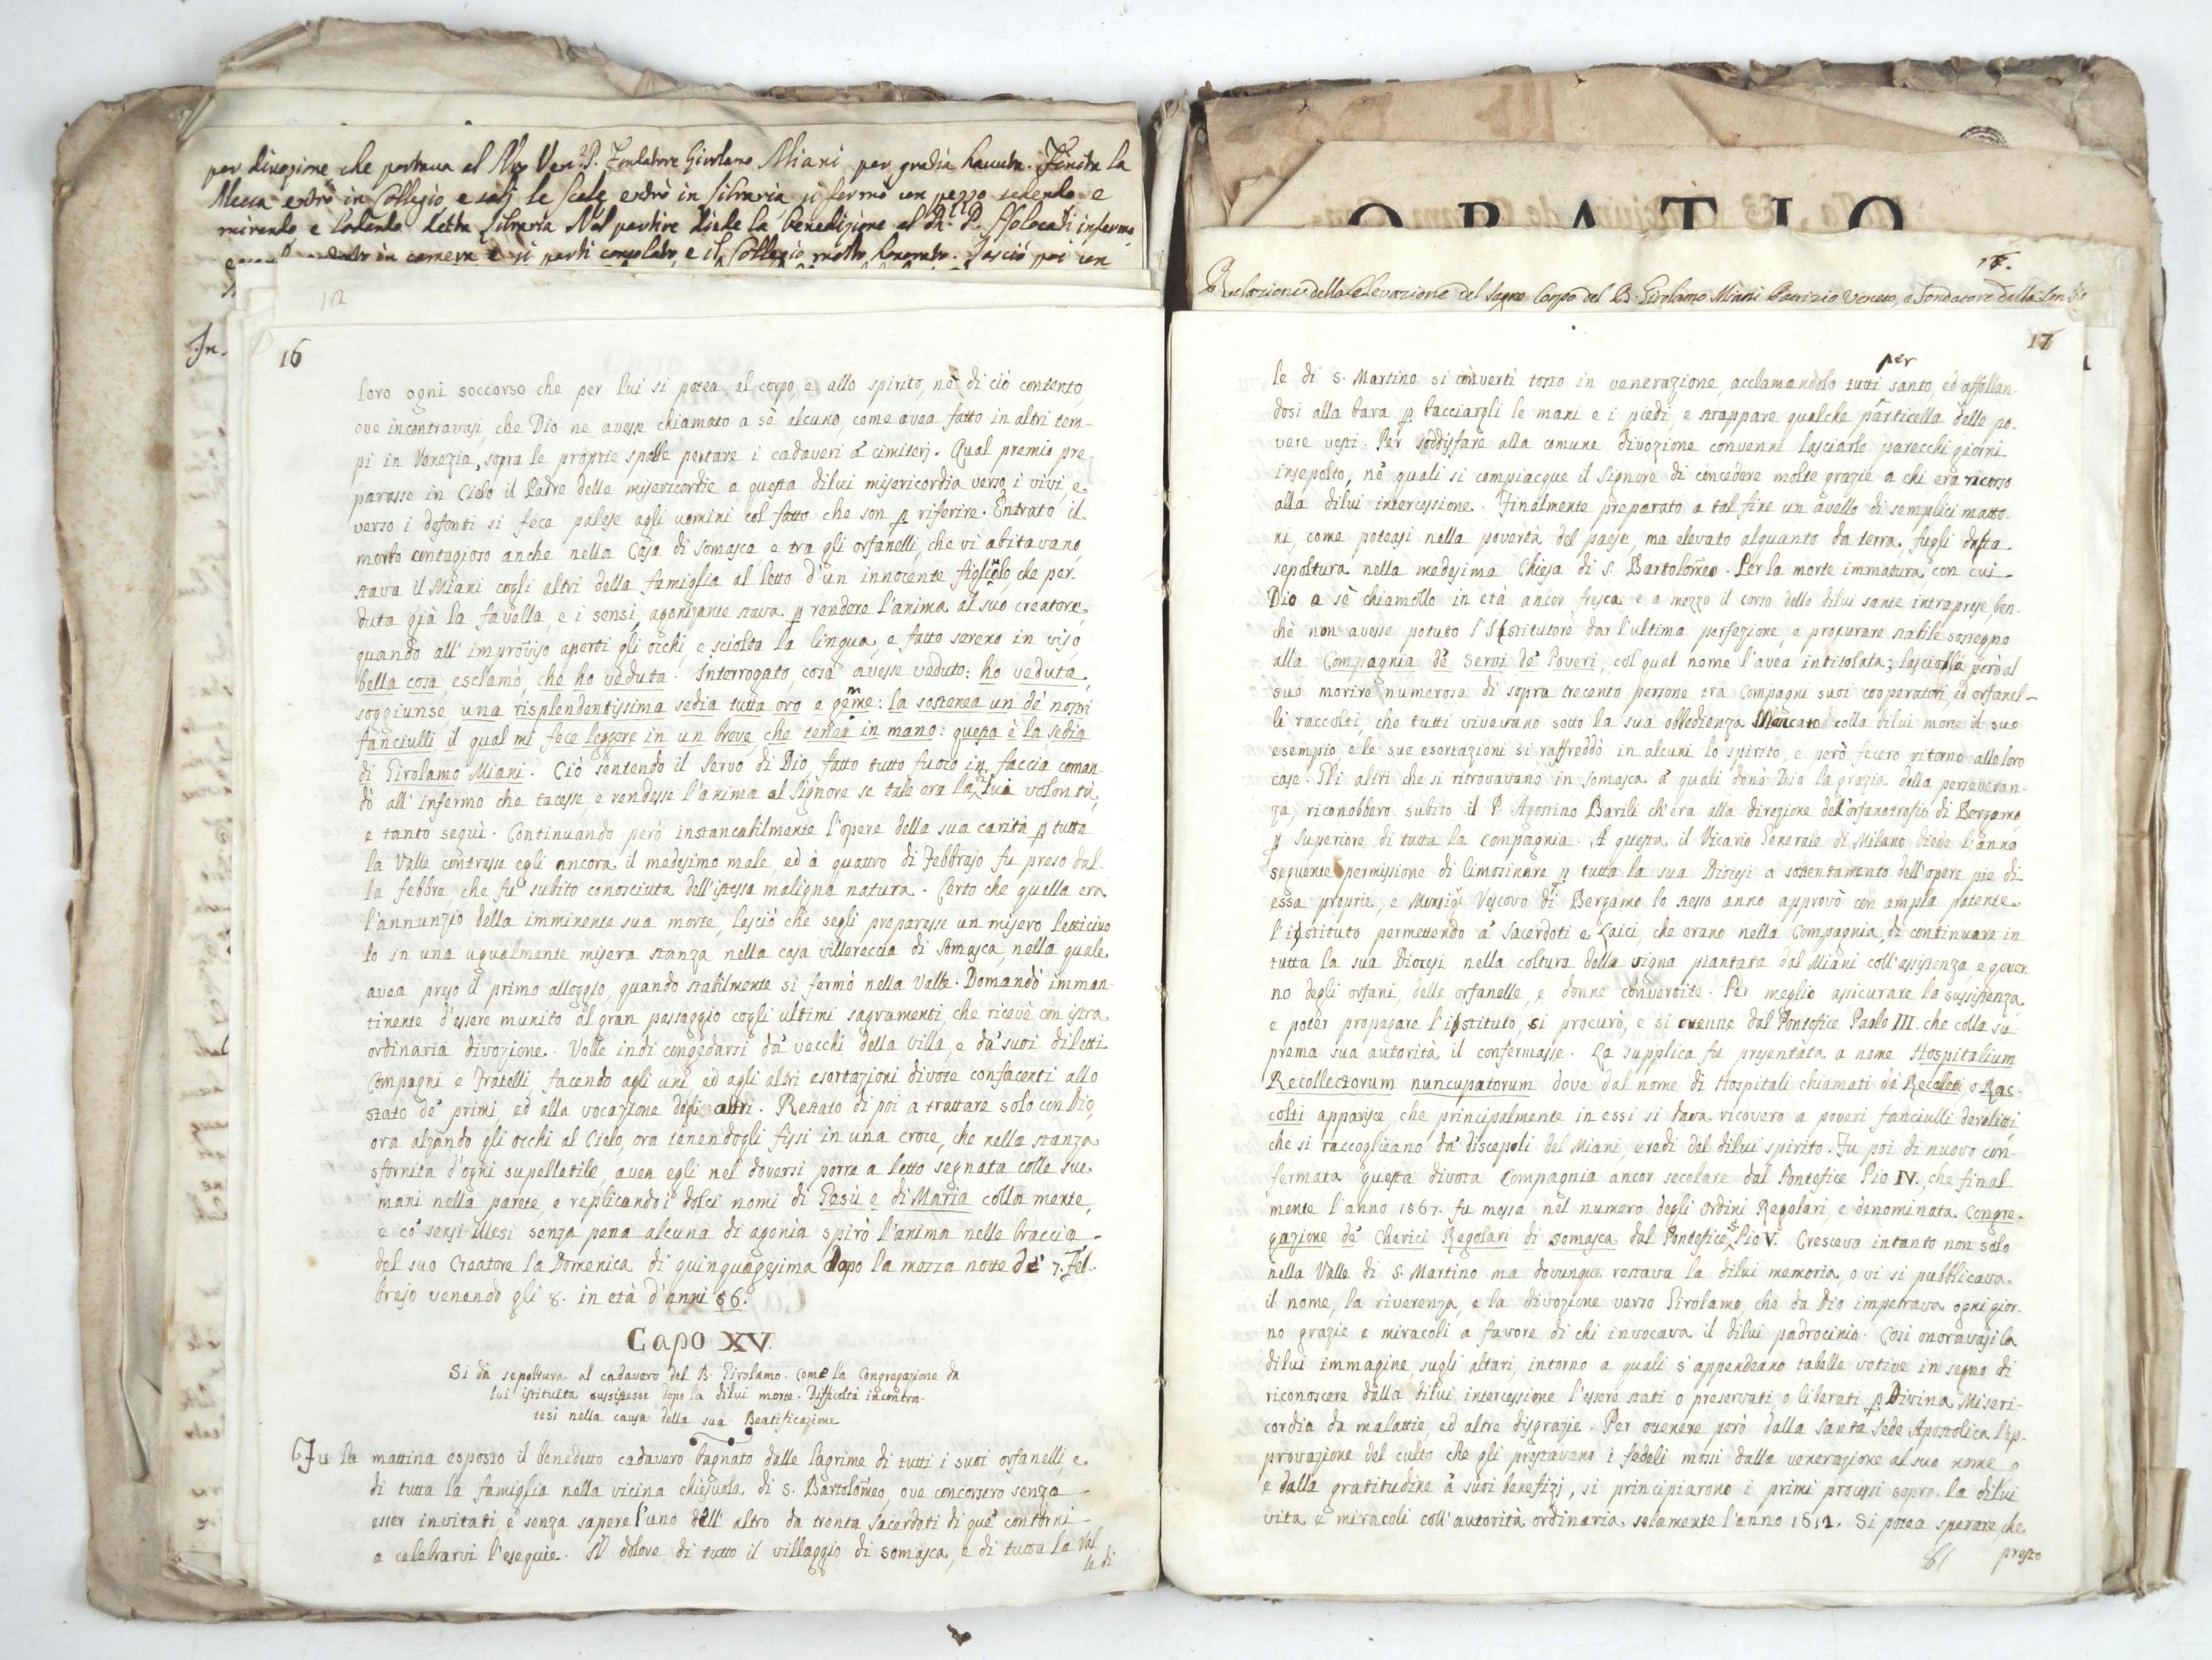 per divozione che portava al Ven. P. Fondatore Girolamo Miani per gratia havuta. Finita la
Messa entrò in Collegio, e salì le Scale entrò in libraria si fermò un pezzo sedendo e
mirando e lodando detta libraria. Nel partire diede la benedizione al P. infermo
in camera e si partì consolato, e il Collegio molto honorato. Lasciò poi un
12
16
loro ogni soccorso che per lui si potea al corpo, e allo spirito, nè di ciò contento,
ove incontravasi, che Dio ne avesse chiamato a sè alcuno, come avea fatto in altri tem-
pi in Venezia, sopra le proprie spalle portare i cadaveri a' cimiterj. Qual premio pre-
parasse in Cielo il Padre delle misericordie a questa dilui misericordia verso i vivi e
verso i defonti si fece palese agli uomini col fatto che son p riferire. Entrato il
morbo contagioso anche nella Casa di Somasca e tra gli orfanelli, che vi abitavano,
stava il Miani cogli altri della famiglia al letto d'un innocente figliuolo, che per-
duta già la favella, e i sensi, agonizante stava p rendere l'anima al suo creatore,
quando all' improviso aperti gli occhi, e sciolta la lingua, e fatto sereno in viso,
bella cosa, esclamò, che ho veduta. Interrogato, cosa avesse veduto: ho veduta,
soggiunse, una risplendentissima sedia tutta oro e gemme: la sostenea un de' nostri
fanciulli, il qual mi fece leggere in un breve, che tenea in mano: questa è la sedia
di Girolamo Miani. Ciò sentendo il Servo di Dio, fatto tutto fuoco in faccia coman-
dò all' infermo che tacesse, e rendesse l'anima al Signore se tale era la di lui volontà,
e tanto seguì. Continuando però instancabilmente l'opere della sua carità p tutta
la Valle contrasse egli ancora il medesimo male, ed a quattro di Febbrajo fu preso dal-
la febbre, che fu subito conosciuta dell'istessa maligna natura. Certo che quella era
l'annunzio della imminente sua morte, lasciò che segli preparasse un misero letticiuo
lo in una ugualmente misera stanza nella casa villereccia di Somasca, nella quale
avea preso il primo alloggio, quando stabilmente si fermò nella Valle. Domandò imman-
tinente d'essere munito al gran passaggio cogli ultimi sagramenti, che ricevè con istra
ordinaria divozione. Volle indi congedarsi da' vecchi della villa, e da' suoi diletti
Compagni e Fratelli, facendo agli uni, ed agli altri esortazioni divote confacenti allo
stato de' primi, ed alla vocazione degli altri. Restato di poi a trattare solo con Dio,
ora alzando gli occhi al Cielo, ora tenendogli fissi in una croce, che nella stanza
sfornita d'ogni supelletile, avea egli nel doversi porre a letto segnata colle sue
mani nella parete, e replicando i dolci nomi di Gesù e di Maria colla mente,
e co' sensi illesi senza pena alcuna di agonia spirò l'anima nelle braccia
del suo Creatore la Domenica di quinquagesima dopo la mezza notte de' 7. Feb-
brajo venendo gli 8. in età d'anni 56.
Capo XV.
Si dà sepoltura al cadavero del B. Girolamo. Come la Congregazione da
lui istituita sussistesse dopo la dilui morte. Difficoltà incontra-
tesi nella causa della sua Beatificazione
Fu la mattina esposto il benedetto cadavero bagnato dalle lagrime di tutti i suoi orfanelli, e
di tutta la famiglia nella vicina chiesuola di S. Bartolomeo, ove concorsero senza
esser invitati, e senza sapere l'uno dell' altro da trenta Sacerdoti di que' contorni
a celebrarvi l'esequie. Il dolore di tutto il villaggio di Somasca, e di tutta la Val
le di
ORATIO
Relazione della Elevazione del Sagro Corpo del B. Girolamo Miani Patrizio Veneto, e Fondatore della
17
le di S. Martino si convertì tosto in venerazione, acclamandolo tutti per santo, ed affollan-
dosi alla bara p bacciargli le mani e i piedi, e strappare qualche particella delle po-
vere vesti. Per soddisfare alla comune divozione convenne lasciarlo parecchi giorni
insepolto, ne' quali si compiacque il Signore di concedere molte grazie a chi era ricorso
alla dilui intercessione. Finalmente preparato a tal fine un avello di semplici matto-
ni, come poteasi nella povertà del paese, ma elevato alquanto da terra, fugli data
sepoltura nella medesima Chiesa di S. Bartolomeo. Per la morte immatura con cui
Dio a sè chiamollo in età ancor fresca, e a mezzo il corso delle dilui sante intraprese, ben-
chè non avesse potuto l'Istitutore dar l'ultima perfezione, e procurare stabile sostegno
alla Compagnia de' Servi de' Poveri, col qual nome l'avea intitolata; lasciolla però al
suo morire numerosa di sopra trecento persone tra Compagni suoi cooperatori, ed orfanel-
li raccolti, che tutti vivevano sotto la sua obbedienza. Mancato colla dilui morte il suo
esempio, e le sue esortazioni si raffreddò in alcuni lo spirito, e però fecero ritorno alle loro
case. Gli altri che si ritrovavano in Somasca a' quali donò Dio la grazia della perseveran-
za, riconobbero subito il P. Agostino Barili ch'era alla direzione del'orfanotrofio di Bergamo
p Superiore di tutta la Compagnia. A questa il Vicario Generale di Milano diede l'anno
seguente permissione di limosinare p tutta la sua Diocesi a sostentamento dell'opere pie di
essa proprie, e Monsig.r Vescovo di Bergamo lo stesso anno approvò con ampla patente
l'istituto permettendo a' Sacerdoti e Laici, che erano nella Compagnia, di continuare in
tutta la sua Diocesi nella coltura della vigna piantata dal Miani coll'assistenza, e gover
no degli orfani, delle orfanelle, e donne convertite. Per meglio assicurare la sussistenza,
e poter propagare l'istituto, si procurò, e si ottenne dal Pontefice Paolo III. che colla su
prema sua autorità il confermasse. La supplica fu presentata a nome Hospitalium
Recollectorum nuncupatorum dove dal nome di Hospitali chiamati de' Recoletti o Rac-
colti apparisce, che principalmente in essi si dava ricovero a poveri fanciulli derelitti
che si raccoglieano da' discepoli del Miani, eredi del dilui spirito. Fu poi di nuovo con-
fermata questa divota Compagnia ancor secolare dal Pontefice Pio IV., che final
mente l'anno 1567. fu messa nel numero degli Ordini Regolari, e denominata Congre-
gazione de' Cherici Regolari di Somasca dal Pontefice S. Pio V. Cresceva intanto non solo
nella Valle di S. Martino ma dovunque restava la dilui memoria, o vi si pubblicava
il nome, la riverenza, e la divozione verso Girolamo, che da Dio impetrava ogni gior-
no grazie e miracoli a favore di chi invocava il dilui padrocinio. Così onoravasi la
dilui immagine sugli altari, intorno a quali s'appendeano tabelle votive in segno di
riconoscere dalla dilui intercessione l'essere stati o preservati, o liberati p Divina Miseri-
cordia da malattie, ed altre disgrazie. Per ottenere però dalla Santa Sede Apostolica l'ap-
provazione del culto che gli prestavano i fedeli mossi dalla venerazione al suo nome
e dalla gratitudine a' suoi benefizj, si principiarono i primi processi sopra la dilui
vita e miracoli coll'autorità ordinaria solamente l'anno 1612. Si potea sperare, che
presto